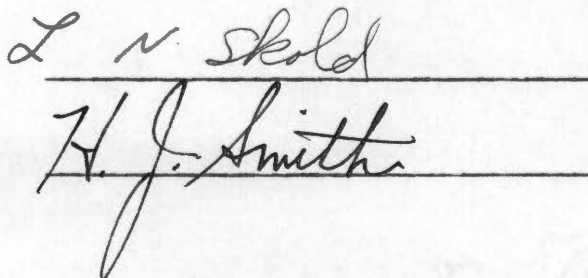 L N. Skold
H. J. Smith